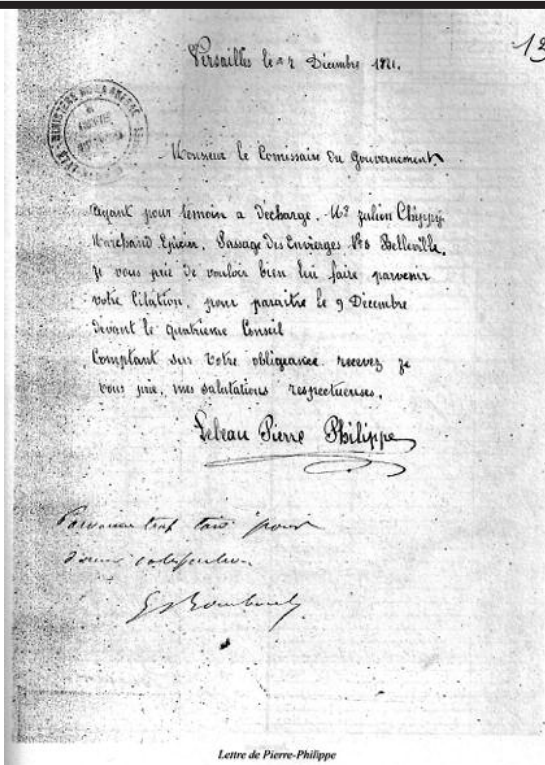 Versailles le 2 Décembre 1871.
12
Monsieur le Comissaire du Gouvernement
Ayant pour témoin a décharge. Mr Julien
Marchand Epicier. Passage des Envierges No 8 Belleville.
je vous prie de vouloir bien lui faire parvenir
votre Citation, pour paraitre le 9 Décembre
devant le quatrieme Conseil
Comptant sur votre obligeance recevez je
vous prie, mes salutations respectueuses.
Lebeau Pierre Philippe
trop tard pour
Lettre de Pierre-Philippe